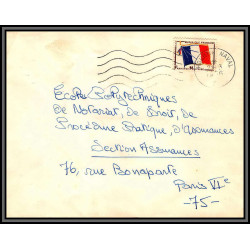 NAVAL
École Polytechniques
De Notariat, de Droit, de
Procédure Pratique, d'Assurances
Section Assurances
76, rue Bonaparte
Paris VIe
-75-